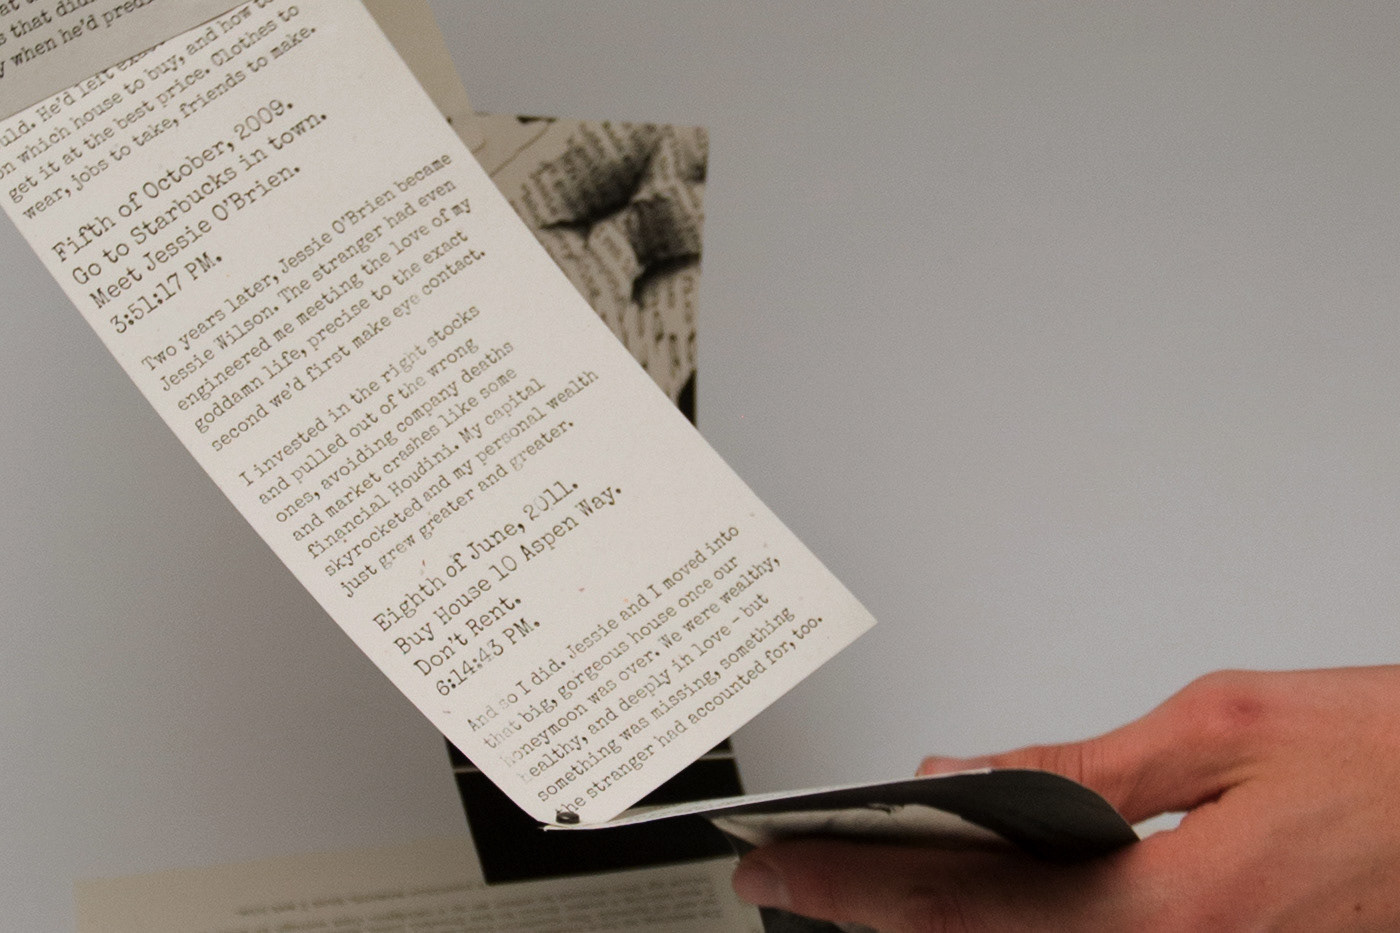 s that didn
y when he'd pred
uld. He'd left
on which house to buy, and how to
get it at the best price. Clothes to
wear, jobs to take, friends to make.
Fifth of October, 2009.
Go to Starbucks in town.
Meet Jessie O'Brien.
3:51:17 PM.
Two years later, Jessie O'Brien became
Jessie Wilson. The stranger had even
engineered me meeting the love of my
goddamn life, precise to the exact
second we'd first make eye contact.
I invested in the right stocks
and pulled out of the wrong
ones, avoiding company deaths
and market crashes like some
financial Houdini. My capital
skyrocketed and my personal wealth
just grew greater and greater.
Eighth of June, 2011.
Buy House 10 Aspen Way.
Don't Rent.
6:14:43 PM.
And so I did. Jessie and I moved into
that big, gorgeous house once our
honeymoon was over. We were wealthy,
healthy, and deeply in love – but
something was missing, something
the stranger had accounted for, too.